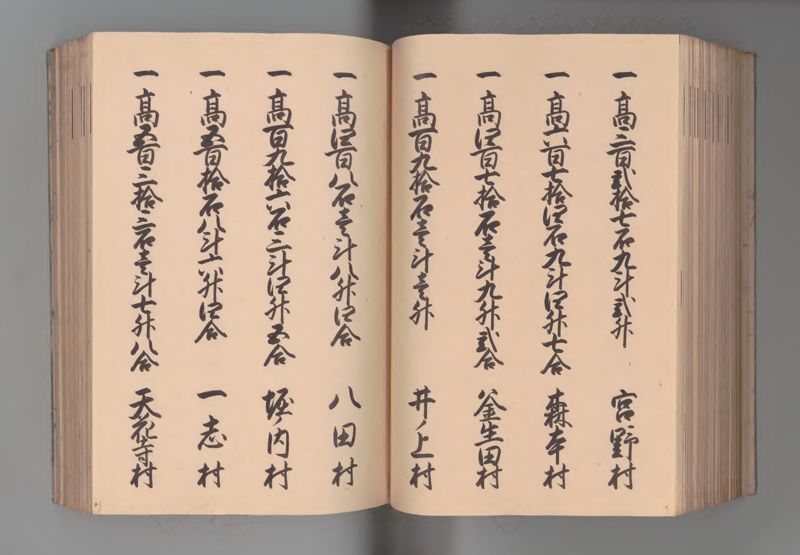 一 高三百弐拾七石九斗弐升 宮野村
一 高六百七拾四石九斗四升七合 森本村
一 高四百七拾石壱斗九升弐合 釜生田村
一 高百九拾石壱斗壱升 井ノ上村
一 高四百八石壱斗八升四合 八田村
一 高百九拾六石三斗四升五合 堀ノ内村
一 高五百拾石八斗六升四合 一志村
一 高五百三拾三石壱斗七升八合 天花寺村